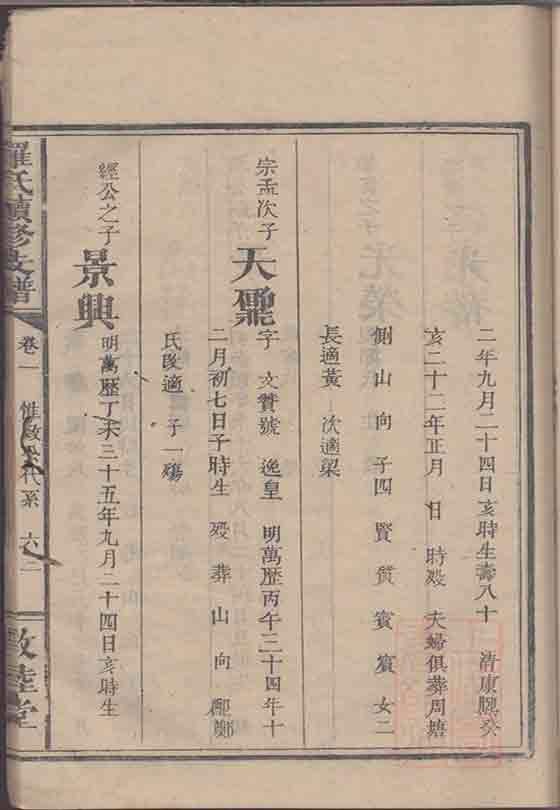 二年九月二十四日亥時生壽八十 清康熙癸
亥二十二年正月 日 時歿 夫婦俱葬周塘
側 山 向 子四 賢 質 賓 女二
長適黃 次適梁
宗孟次子
天 字 文贊號 逸皇 明萬歷丙午三十四年十
二月初七日子時生 歿 葬 山 向 鄭
氏改適 子一殤
經公之子
景興 明萬歷丁未三十五年九月二十四日亥時生
羅氏續修支譜
卷一 惟敬 代系 六
敦陸堂